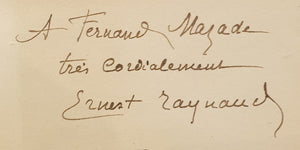 A Fernand Mazade
très cordialement
Ernest Raynaud